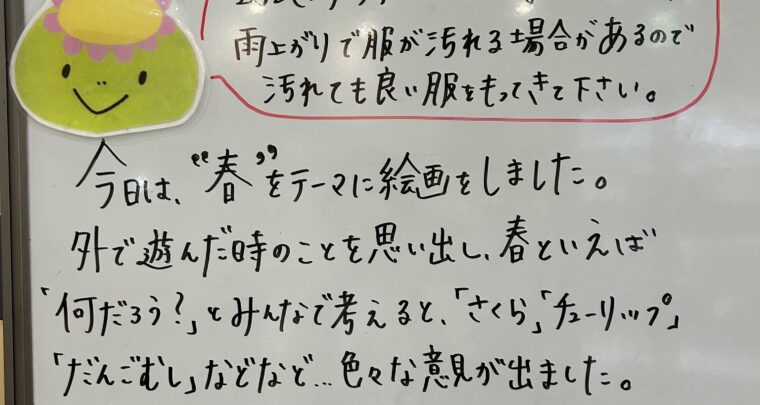 雨上がりで服が汚れる場合があるので
汚れても良い服をもってきて下さい。
今日は、"春"をテーマに絵画をしました。
外で遊んだ時のことを思い出し、春といえば
「何だろう?」とみんなで考えると、「さくら」「チューリップ」
「だんごむし」などなど…色々な意見が出ました。